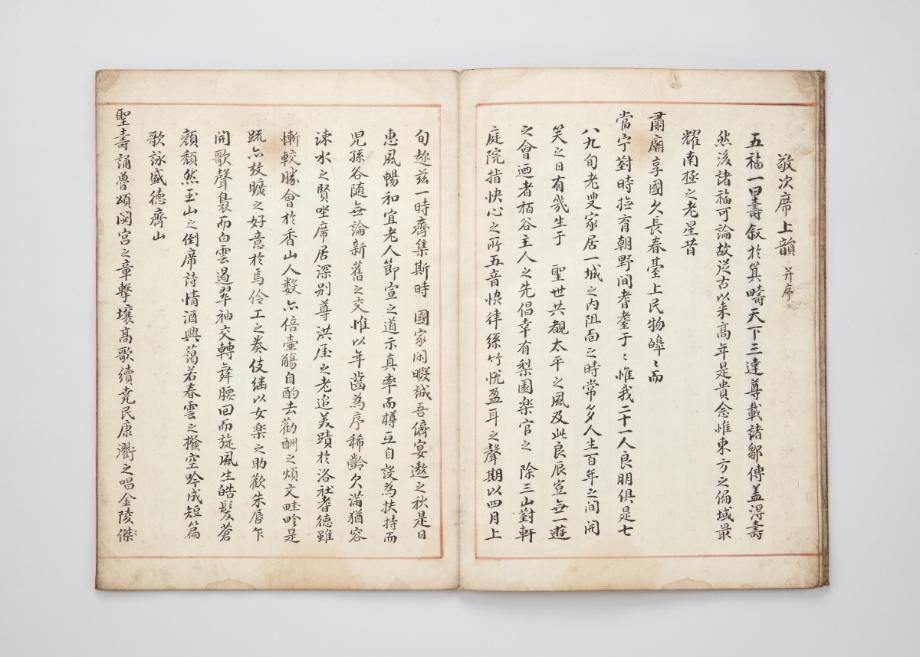 敬次席上韻 并序
五福一曰壽叙於箕疇天下三達尊載諸鄒傳盖得壽
然後諸福可論故從古以來高年是貴念惟東方之偏域最
耀南極之老星昔
肅廟享國久長春臺上民物皥〻而
當宁對時撫育朝野間耆耋于〻惟我二十一人良朋俱是七
八九旬老叟家居一城之內阻面之時常多人生百年之間開
笑之日有幾生于 聖世共覩太平之風及此良辰豈無一遊
之會迺者栢谷主人之先倡幸有梨園樂官之 除三山對軒
庭院指快心之所五音悞律絲竹悅盈耳之聲期以四月上
旬趂玆一時齊集斯時 國家閒暇誠吾儕宴遨之秋是日
惠風暢和宜老人節宣之道示真率而樽互自設為扶持而
児孫各随無論新舊之交惟以年齒為序稀齡欠滿猶容
涑水之賢坐席居深別尊洪厓之老追美蹟於洛社耆德雖
慚較勝會於香山人数亦倍壷觴自酌去勸酬之煩文畦畛是
疏亦放曠之好意於焉伶工之奏伎繼以女樂之助歡朱唇乍
開歌聲裊而白雲遏翠袖交轉舞腰回而旋風生皓髮蒼
顏頹然玉山之倒席詩情酒興藹若春雲之撥空吟成短篇
歌詠盛德齊山
聖壽誦魯頌閟宮之章擊壤高歌續堯民康衢之唱金陵傑